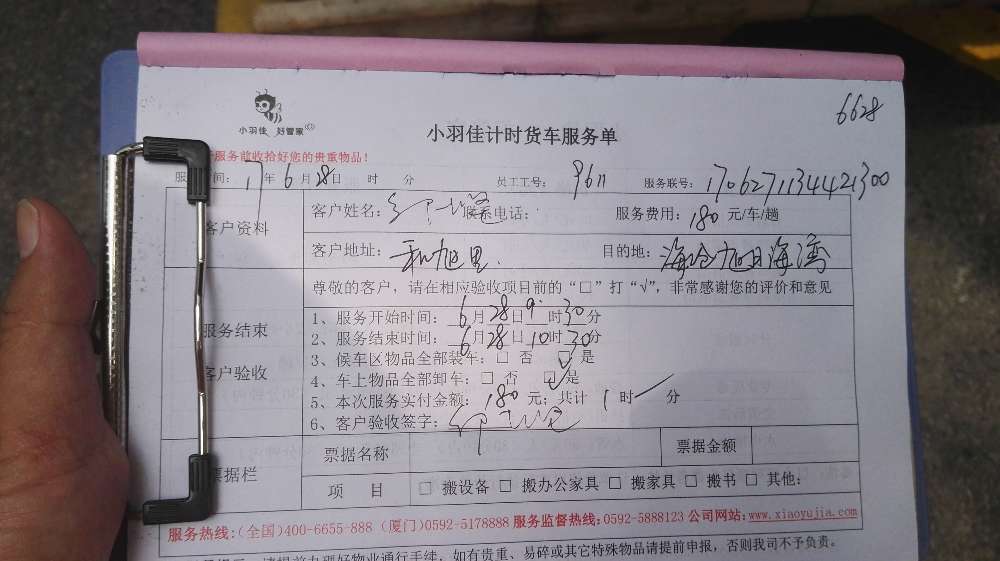 6628
小羽佳 好管家
小羽佳计时货车服务单
服务前收拾好您的贵重物品！
时间：17年6月28日 时 分 员工工号：9611 服务联号：1706271134421300
客户资料
客户姓名： 联系电话： 服务费用：180元/车/趟
客户地址：和旭里 目的地：海沧旭日海湾
尊敬的客户，请在相应验收项目前的“□”打“√”，非常感谢您的评价和意见
服务结束
客户验收
1、服务开始时间：6月28日9时30分
2、服务结束时间：6月28日10时30分
3、候车区物品全部装车：□ 否 ☑ 是
4、车上物品全部卸车：□ 否 ☑ 是
5、本次服务实付金额：180元；共计 1时 分
6、客户验收签字：
票据栏
票据名称 票据金额
项 目 □ 搬设备 □ 搬办公家具 □ 搬家具 □ 搬书 □ 其他：
服务热线：(全国)400-6655-888 (厦门)0592-5178888 服务监督热线：0592-5888123 公司网站：www.xiaoyujia.com
请提前办理好物业通行手续，如有贵重、易碎或其它特殊物品请提前申报，否则我司不予负责。